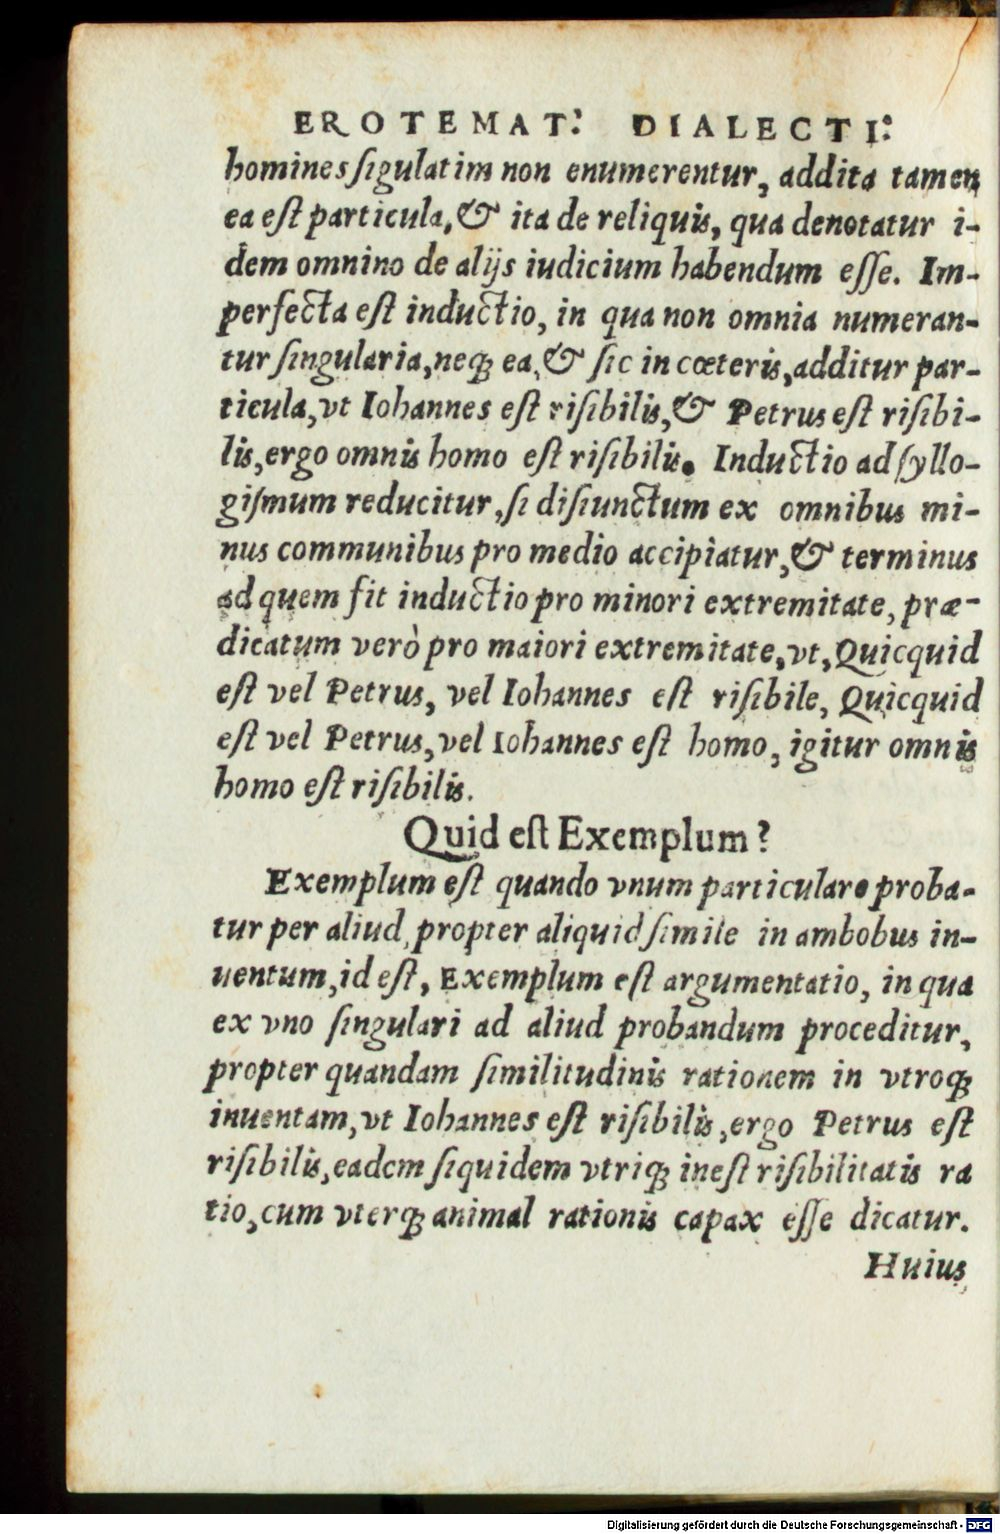 EROTEMAT: DIALECTI:
homines ſigulatim non enumerentur, addita tamen
ea eſt particula, & ita de reliquis, qua denotatur i-
dem omnino de alijs iudicium habendum eſſe. Im-
perfecta eſt inductio, in qua non omnia numeran-
tur ſingularia, neq; ea, & ſic in cœteris, additur par-
ticula, vt Iohannes eſt riſibilis, & Petrus eſt riſibi-
lis, ergo omnis homo eſt riſibilis. Inductio ad ſyllo-
giſmum reducitur, ſi diſiunctum ex omnibus mi-
nus communibus pro medio accipiatur, & terminus
ad quem fit inductio pro minori extremitate, præ-
dicatum verò pro maiori extremitate, vt, Quicquid
eſt vel Petrus, vel Iohannes eſt riſibile, Quicquid
eſt vel Petrus, vel Iohannes eſt homo, igitur omnis
homo eſt riſibilis.
Quid eſt Exemplum?
Exemplum eſt quando vnum particulare proba-
tur per aliud, propter aliquid ſimile in ambobus in-
uentum, id eſt, Exemplum eſt argumentatio, in qua
ex vno ſingulari ad aliud probandum proceditur,
propter quandam ſimilitudinis rationem in vtroq;
inuentam, vt Iohannes eſt riſibilis, ergo Petrus eſt
riſibilis, eadem ſiquidem vtriq; ineſt riſibilitatis ra
tio, cum vterq; animal rationis capax eſſe dicatur.
Huius
Digitalisierung gefördert durch die Deutsche Forschungsgemeinschaft - DFG